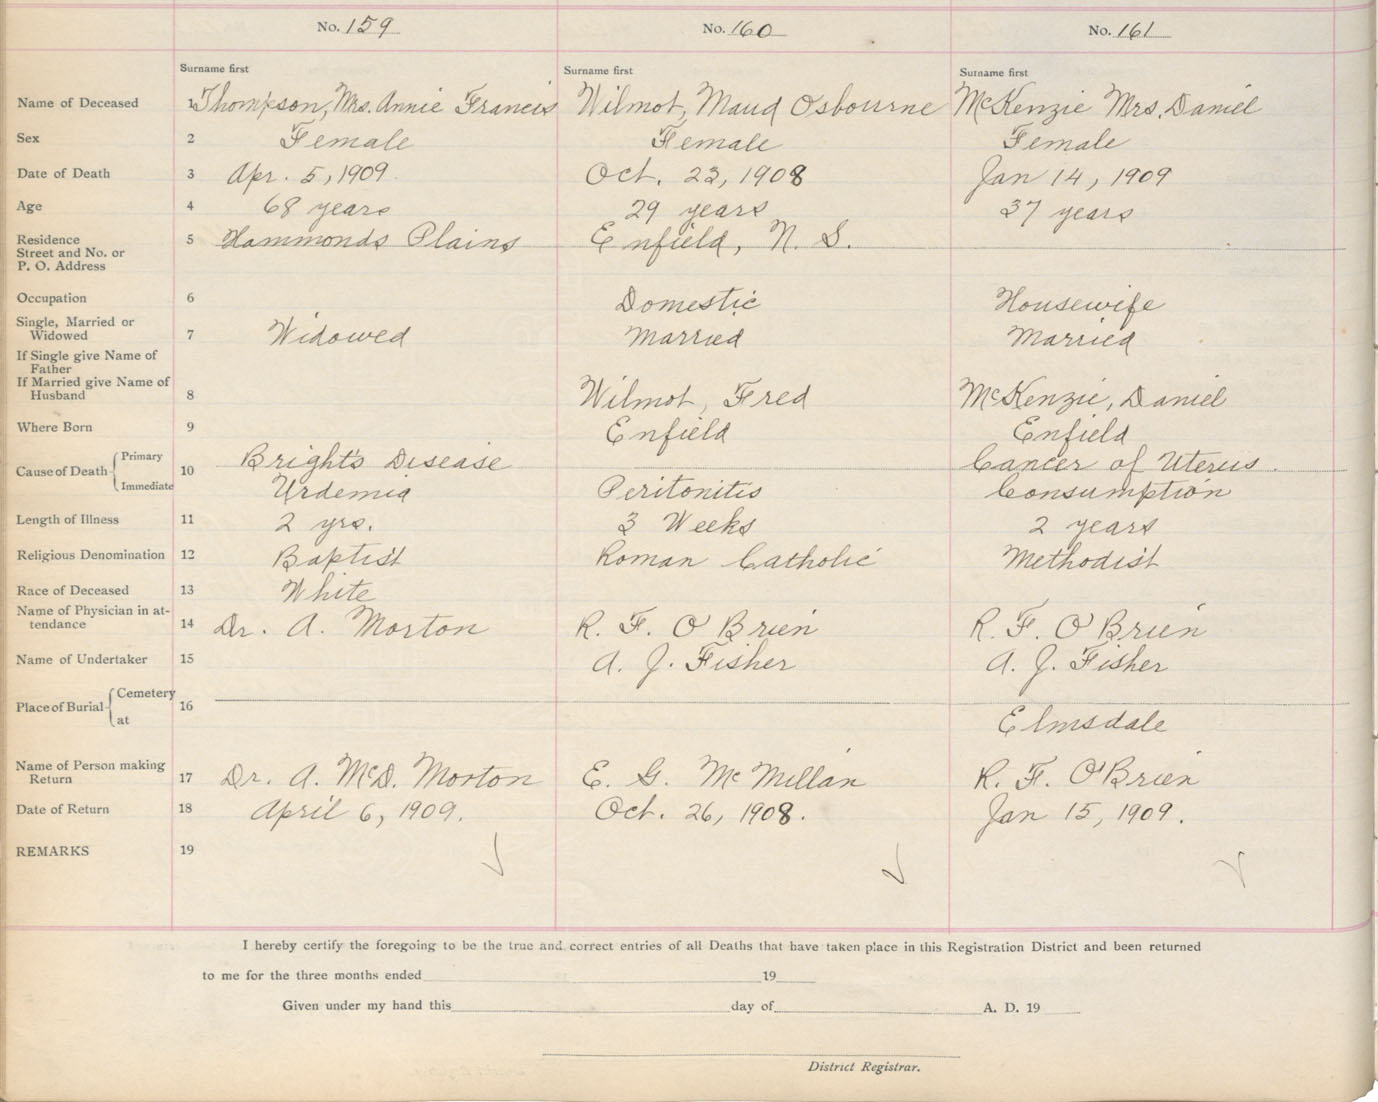 No. 159 No. 160 No. 161
Surname first Surname first Surname first
Name of Deceased 1 Thompson, Mrs. Annie Francis Wilmot, Maud Osbourne McKenzie Mrs. Daniel
Sex 2 Female Female Female
Date of Death 3 Apr. 5, 1909. Oct. 23, 1908 Jan 14, 1909
Age 4 68 years 29 years 37 years
Residence 5 Hammonds Plains Enfield, N. S.
Street and No. or
P. O. Address
Occupation 6 Domestic Housewife
Single, Married or
Widowed 7 Widowed Married Married
If Single give Name of
Father
If Married give Name of
Husband 8 Wilmot, Fred McKenzie, Daniel
Where Born 9 Enfield Enfield
Cause of Death Primary 10 Bright's Disease Cancer of Uterus.
Immediate Urdemia Peritonitis Consumption
Length of Illness 11 2 yrs. 3 Weeks 2 years
Religious Denomination 12 Baptist Roman Catholic Methodist
Race of Deceased 13 White
Name of Physician in at-
tendance 14 Dr. A. Morton R. F. O'Brien R. F. O'Brien
Name of Undertaker 15 A. J. Fisher A. J. Fisher
Place of Burial Cemetery 16
at Elmsdale
Name of Person making
Return 17 Dr. A. McD. Morton E. G. McMillan R. F. O'Brien
Date of Return 18 April 6, 1909. Oct. 26, 1908. Jan 15, 1909.
REMARKS 19
I hereby certify the foregoing to be the true and correct entries of all Deaths that have taken place in this Registration District and been returned
to me for the three months ended 19
Given under my hand this day of A. D. 19
District Registrar.